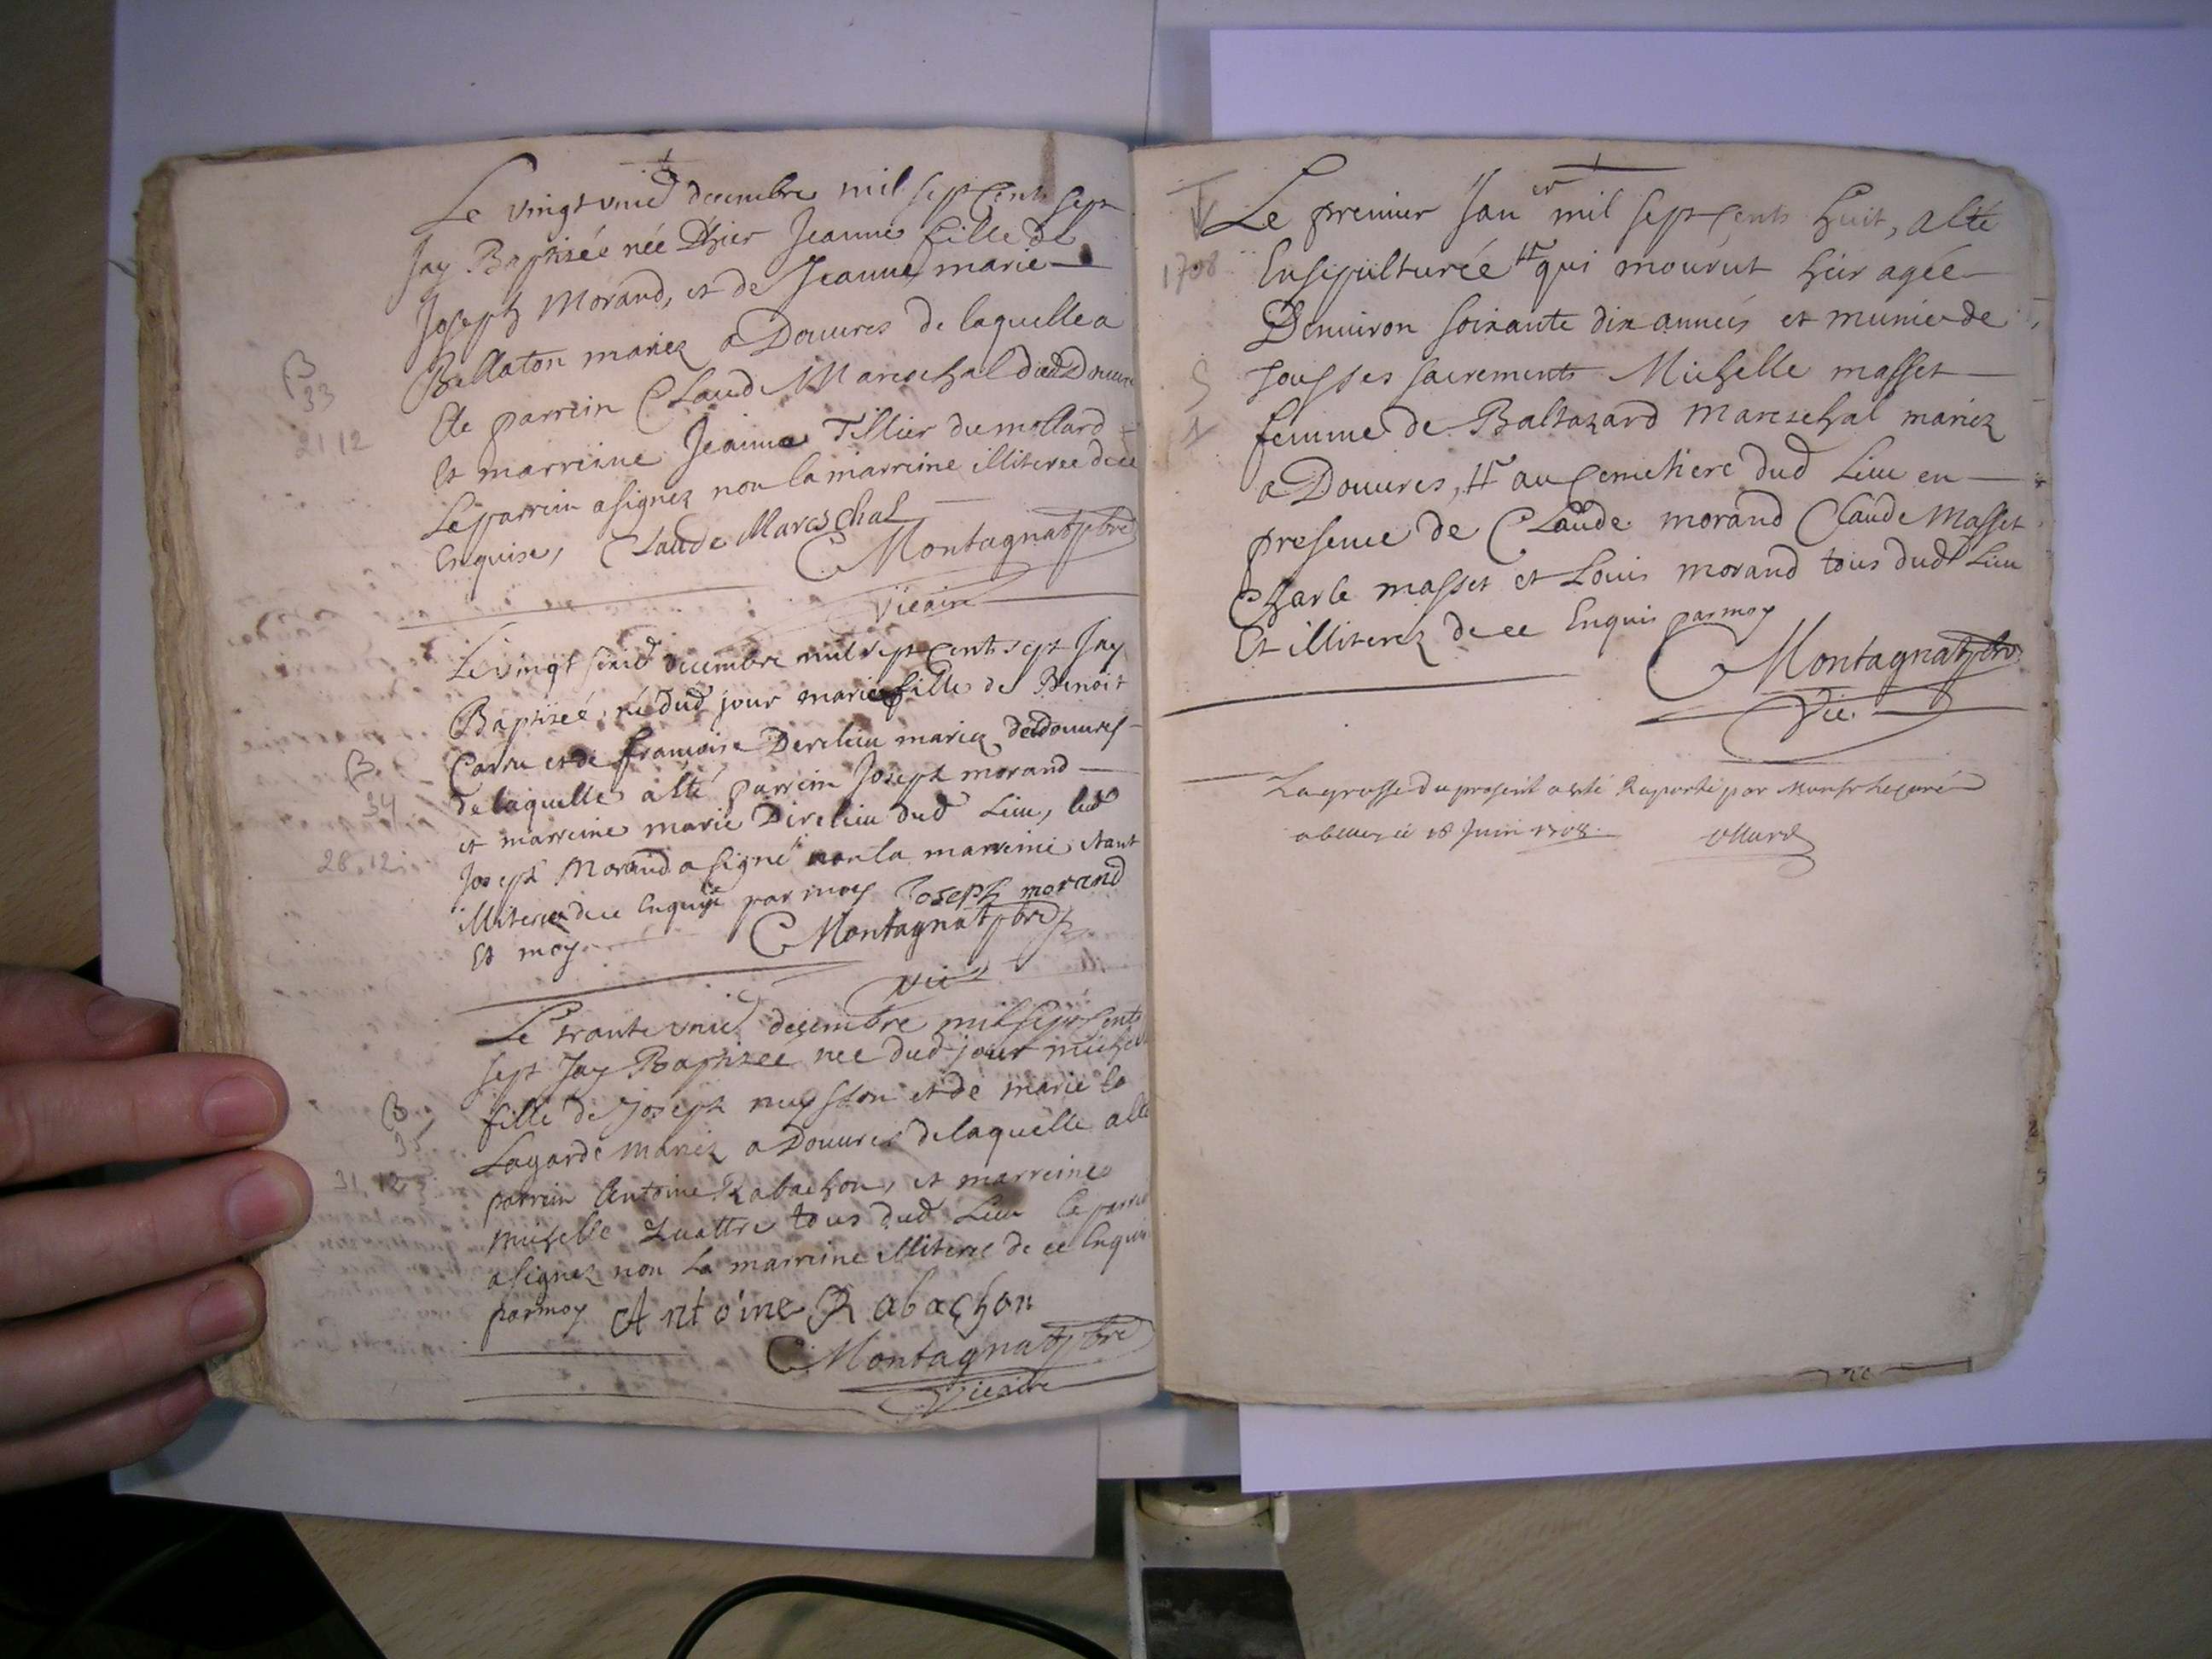 Le vingt unie decembre mil sept cents sept
Jay Baptizée née Dhier Jeanne fille de
Joseph Morand, et de Jeanne marie
Bellaton mariez a Douures de laquelle a
Ete parrein Claude Mareschal dud Douure
Et marreine Jeanne Tillier du mollard
Le parrein a signez non la marreine illiteree de ce
Enquise, Claude Mareschal
Montagnat pbre
Vicaire
B
33
21 12
Le vingt decembre mil sept cents sept Jay
Baptizeé née dud jour marie fille de Benoit
Carru et de françoise Dereleiu mariez dud douures
de laquelle a Eté parrein Joseph morand
et marreine marie Direleiu dud Lieu, led
Joseph Morand a signé non la marreine etant
illiteree de ce Enquise par moy Joseph morand
Et moy Montagnat pbre
Vic
B
34
28.12
Le trante unie decembre mil sept cents
sept Jay Baptizee nee dud jour michelle
fille de Joseph muysson et de marie la
Lagarde mariez a Douures de laquelle a Ete
parrein Antoine Rabachon, et marreine
michelle Quattre tous dud Lieu le parrein
a signez non la marreine illiteree de ce Enquise
par moy Antoine Rabachon
Montagnat pbre
Vicaire
B
35
31 12
1708
Le premier Janer mil sept cents huit, a Eté
Ensepulturée # qui mourut hier agée
Denuiron soixante dix années et munie de
tous ses sacrements Michelle masset
femme de Baltazard Mareschal mariez
a Douures, # au Cemetiere dud Lieu en
presence de Claude morand Claude Masset
Charle masset et Louis morand tous dudt Lieu
Et illiterez de ce Enquis par moy
Montagnat pbre
Vic.
S
1
La grosse du present a esté Raporté par Monsr le curé
a belley ce 18 Juin 1708.